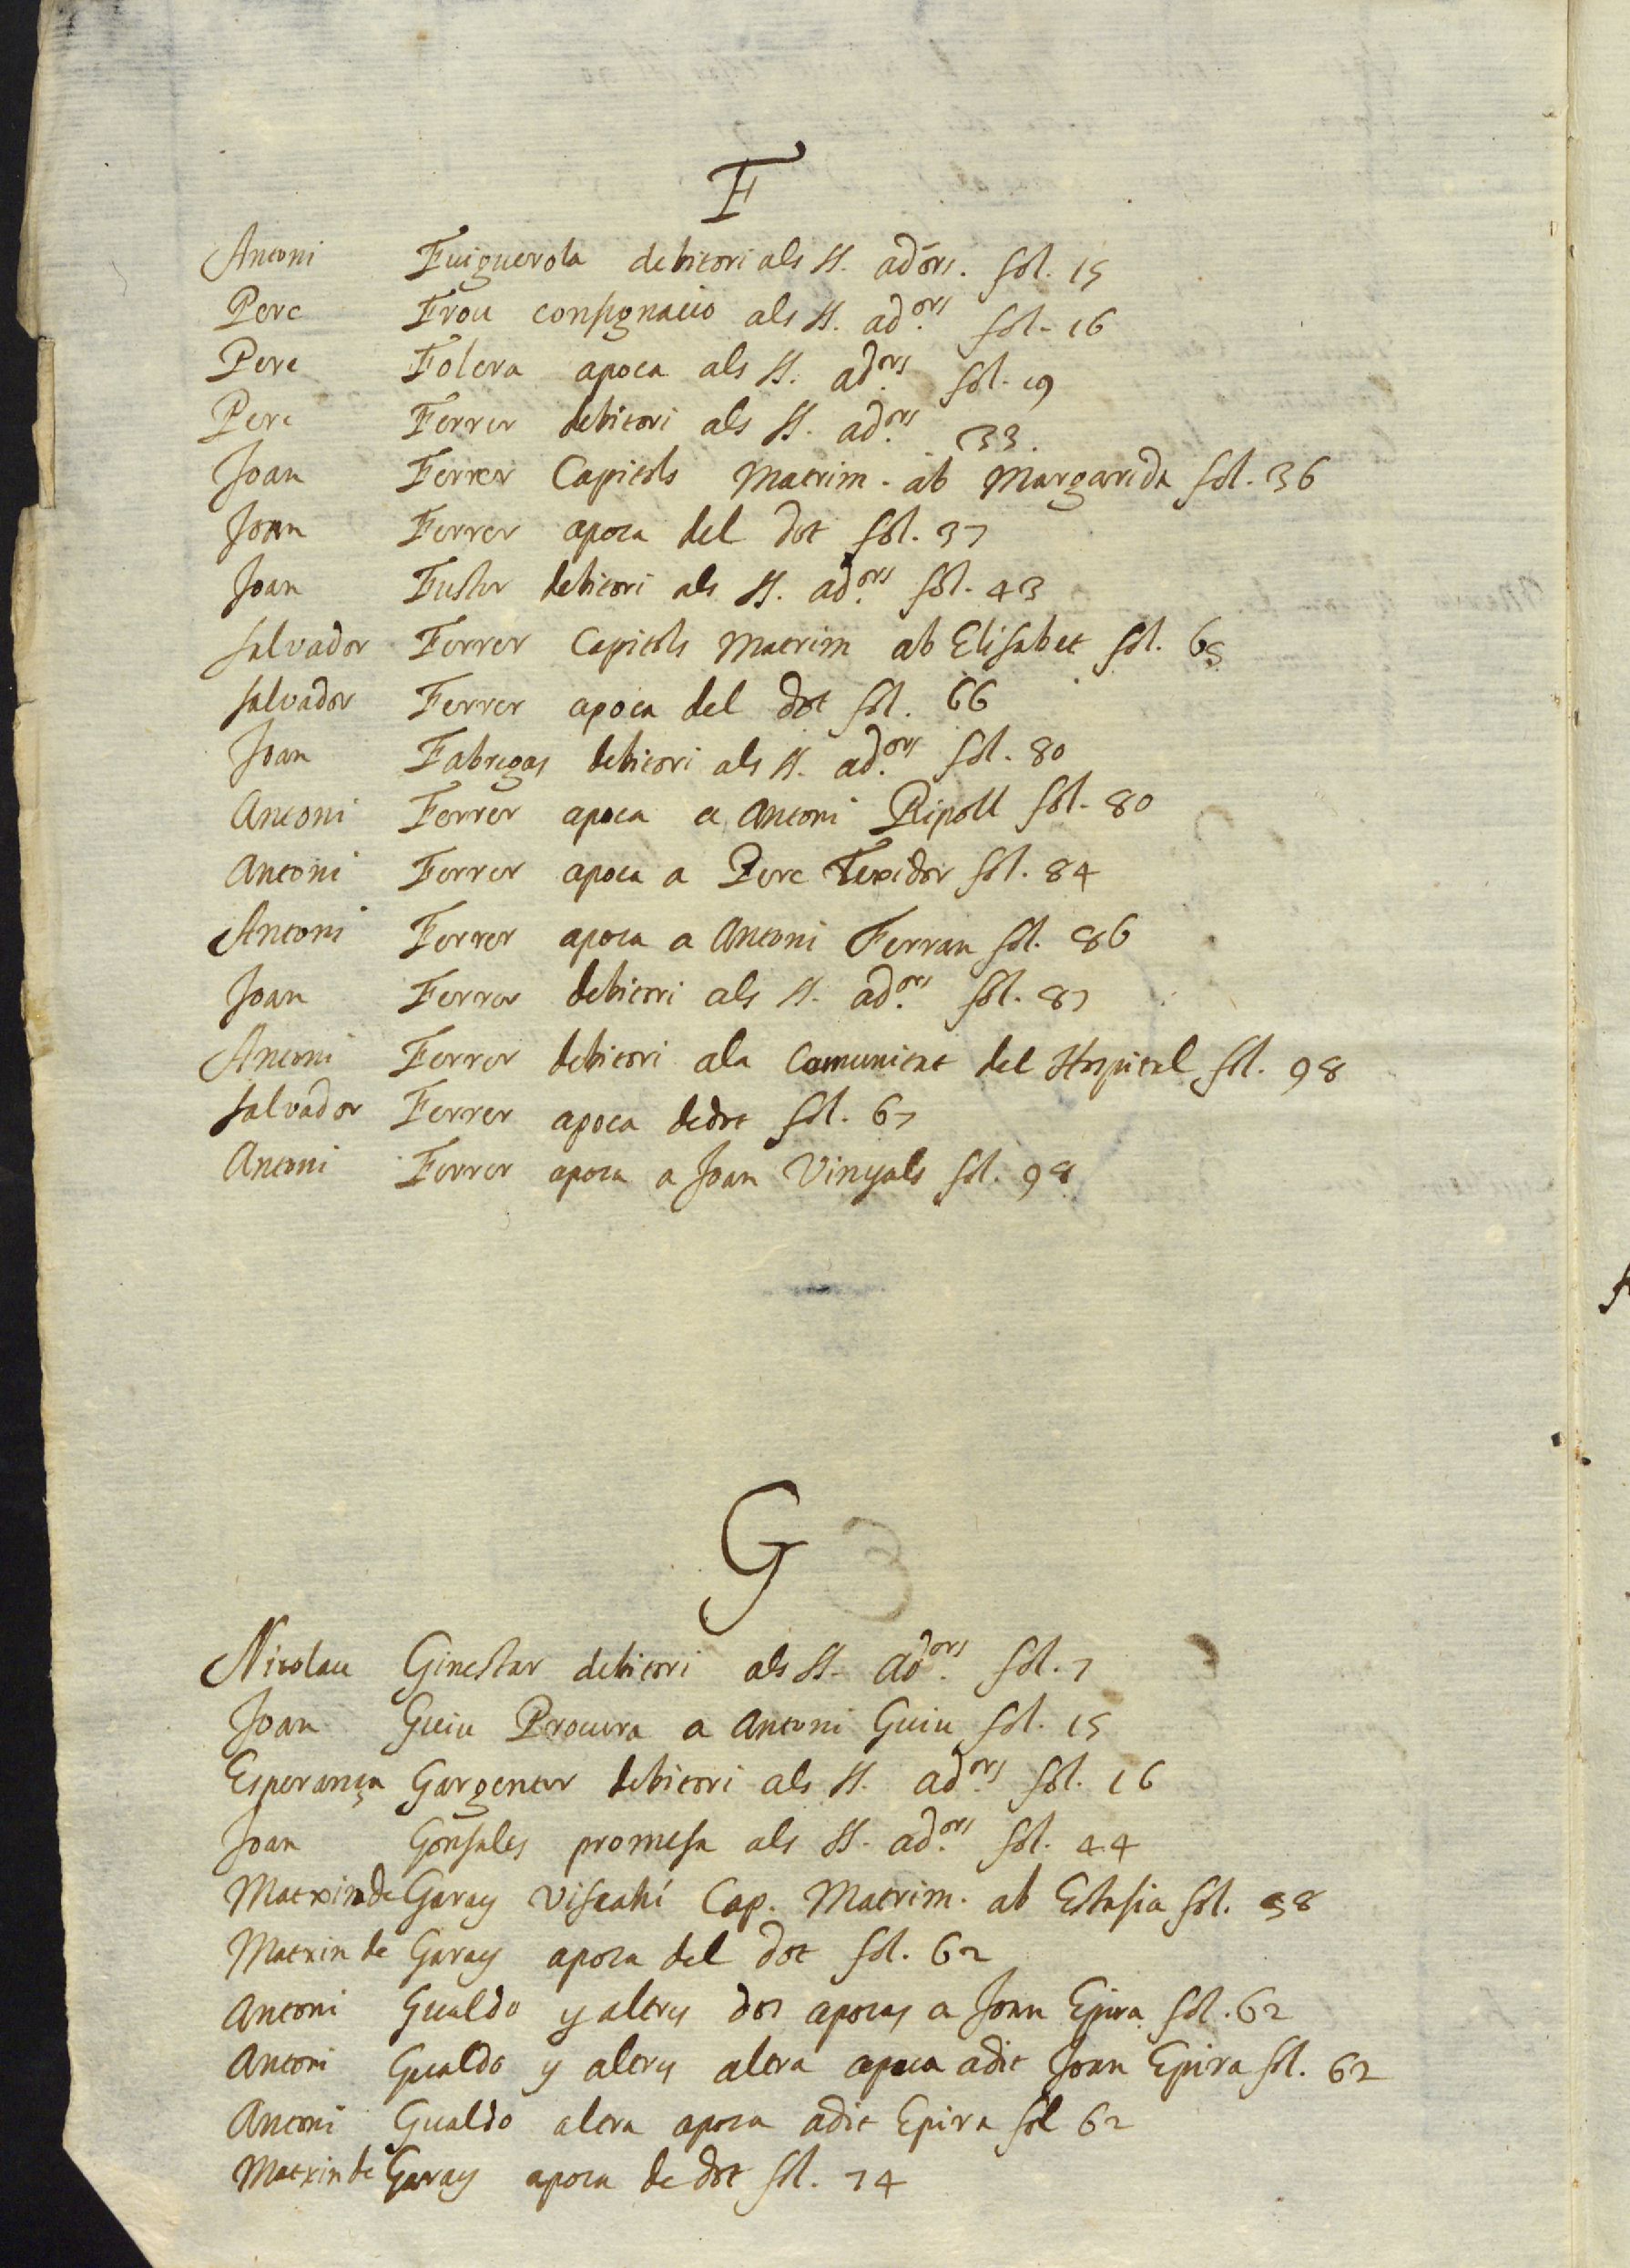 F
Antoni Fuiguerola debitori als SS. adors. fol. 15
Pere Frou consignacio als SS. ad.ors fol. 16
Pere Folera apoca als SS. ad.ors fol. 19
Pere Ferrer debitori als SS. ad.ors 33.
Joan Ferrer Capitols Matrim. ab Margarida fol. 36
Joan Ferrer apoca del dot fol. 37
Joan Fuster debitori als SS. ad.ors fol. 43
Salvador Ferrer Capitols Matrim ab Elisabet fol. 65
Salvador Ferrer apoca del dot fol. 66
Joan Fabregas debitori als SS. ad.ors fol. 80
Antoni Ferrer apoca a Antoni Ripoll fol. 80
Antoni Ferrer apoca a Pere Texidor fol. 84
Antoni Ferrer apoca a Antoni Ferran fol. 86
Joan Ferrer debitori als SS. ad.ors fol. 87
Antoni Ferrer debitori ala Comunitat del Hospital fol. 98
Salvador Ferrer apoca dedot fol. 67
Antoni Ferrer apoca a Joan Vinyals fol. 98
G
Nicolau Ginestar debitori als SS. ad.ors fol. 7
Joan Guiu Procura a Antoni Guiu fol. 15
Esperança Gargenter debitori als SS. ad.ors fol. 16
Joan Gonsales promesa als SS. ad.ors fol. 44
Matxin de Garay Viscahi Cap. Matrim. ab Estasia fol. 58
Matxin de Garay apoca del dot fol. 62
Antoni Gualdo y altres dos apocas a Joan Epira fol. 62
Antoni Gualdo y altres altra apoca adit Joan Epira fol. 62
Antoni Gualdo altra apoca adit Epira fol 62
Matxin de Garay apoca de dot fol. 74